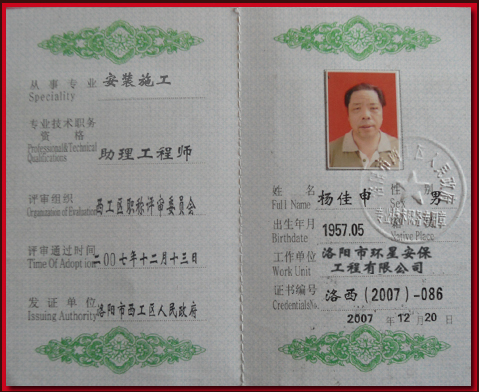 从事专业 安装施工
Speciality
专业技术职务
资格 助理工程师
Professional&Technical
Qualifications
评审组织 西工区职称评审委员会
Organization of Evaluation
评审通过时间
Time Of Adoption 二〇〇七年十二月十三日
发证单位
Issuing Authority 洛阳市西工区人民政府
姓名 杨佳申 性别 男
Full Name Sex
出生年月 1957.05
Birthdate Native Place
工作单位 洛阳市环星安保
Work Unit 工程有限公司
证书编号 洛西(2007)-086
Credentials
2007 12月20日